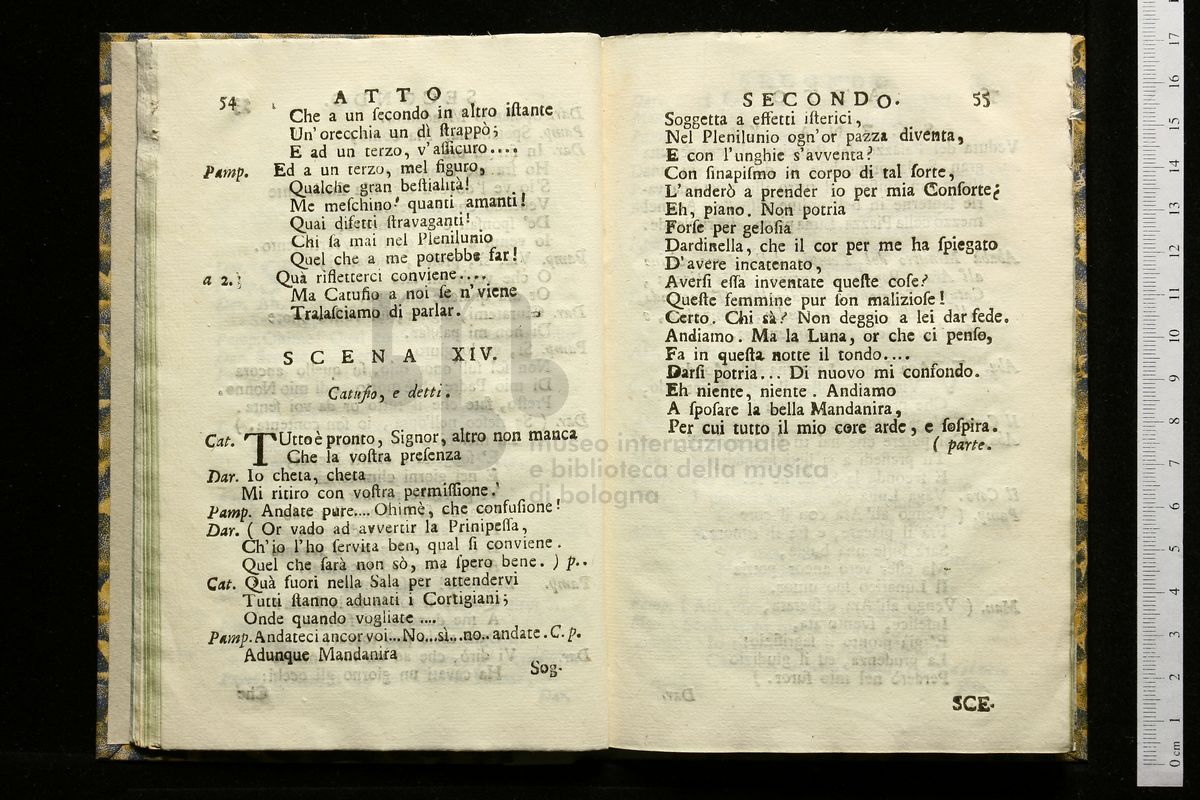 54 ATTO
Che a un ſecondo in altro iſtante
Un'orecchia un dì ſtrappò;
E ad un terzo, v'aſſicuro....
Pamp. Ed a un terzo, mel figuro,
Qualche gran beſtialità!
Me meſchino! quanti amanti!
Quai difetti ſtravaganti!
Chi ſa mai nel Plenilunio
Quel che a me potrebbe far!
a 2. Quà rifletterci conviene....
Ma Catufio a noi ſe n'viene
Tralaſciamo di parlar.
SCENA XIV.
Catufio, e detti.
Cat. TUtto è pronto, Signor, altro non manca
Che la voſtra preſenza
Dar. Io cheta, cheta
Mi ritiro con voſtra permiſſione.
Pamp. Andate pure.... Ohimè, che confuſione!
Dar. ( Or vado ad avvertir la Prinipeſſa,
Ch'io l'ho ſervita ben, qual ſi conviene.
Quel che ſarà non sò, ma ſpero bene. ) p..
Cat. Quà fuori nella Sala per attendervi
Tutti ſtanno adunati i Cortigiani;
Onde quando vogliate ....
Pamp. Andateci ancor voi...No...sì...no.. andate. C. p.
Adunque Mandanira
Sog-
SECONDO. 55
Soggetta a effetti iſterici,
Nel Plenilunio ogn'or pazza diventa,
E con l'unghie s'avventa?
Con ſinapiſmo in corpo di tal ſorte,
L'anderò a prender io per mia Conſorte?
Eh, piano. Non potria
Forſe per geloſia
Dardinella, che il cor per me ha ſpiegato
D'avere incatenato,
Averſi eſſa inventate queſte coſe?
Queſte femmine pur ſon malizioſe!
Certo. Chi sà? Non deggio a lei dar fede.
Andiamo. Ma la Luna, or che ci penſo,
Fa in queſta notte il tondo....
Darſi potria... Di nuovo mi confondo.
Eh niente, niente. Andiamo
A ſpoſare la bella Mandanira,
Per cui tutto il mio core arde, e ſoſpira.
( parte.
SCE-
museo internazionale
e biblioteca della musica
di bologna
0 cm 1 2 3 4 5 6 7 8 9 10 11 12 13 14 15 16 17